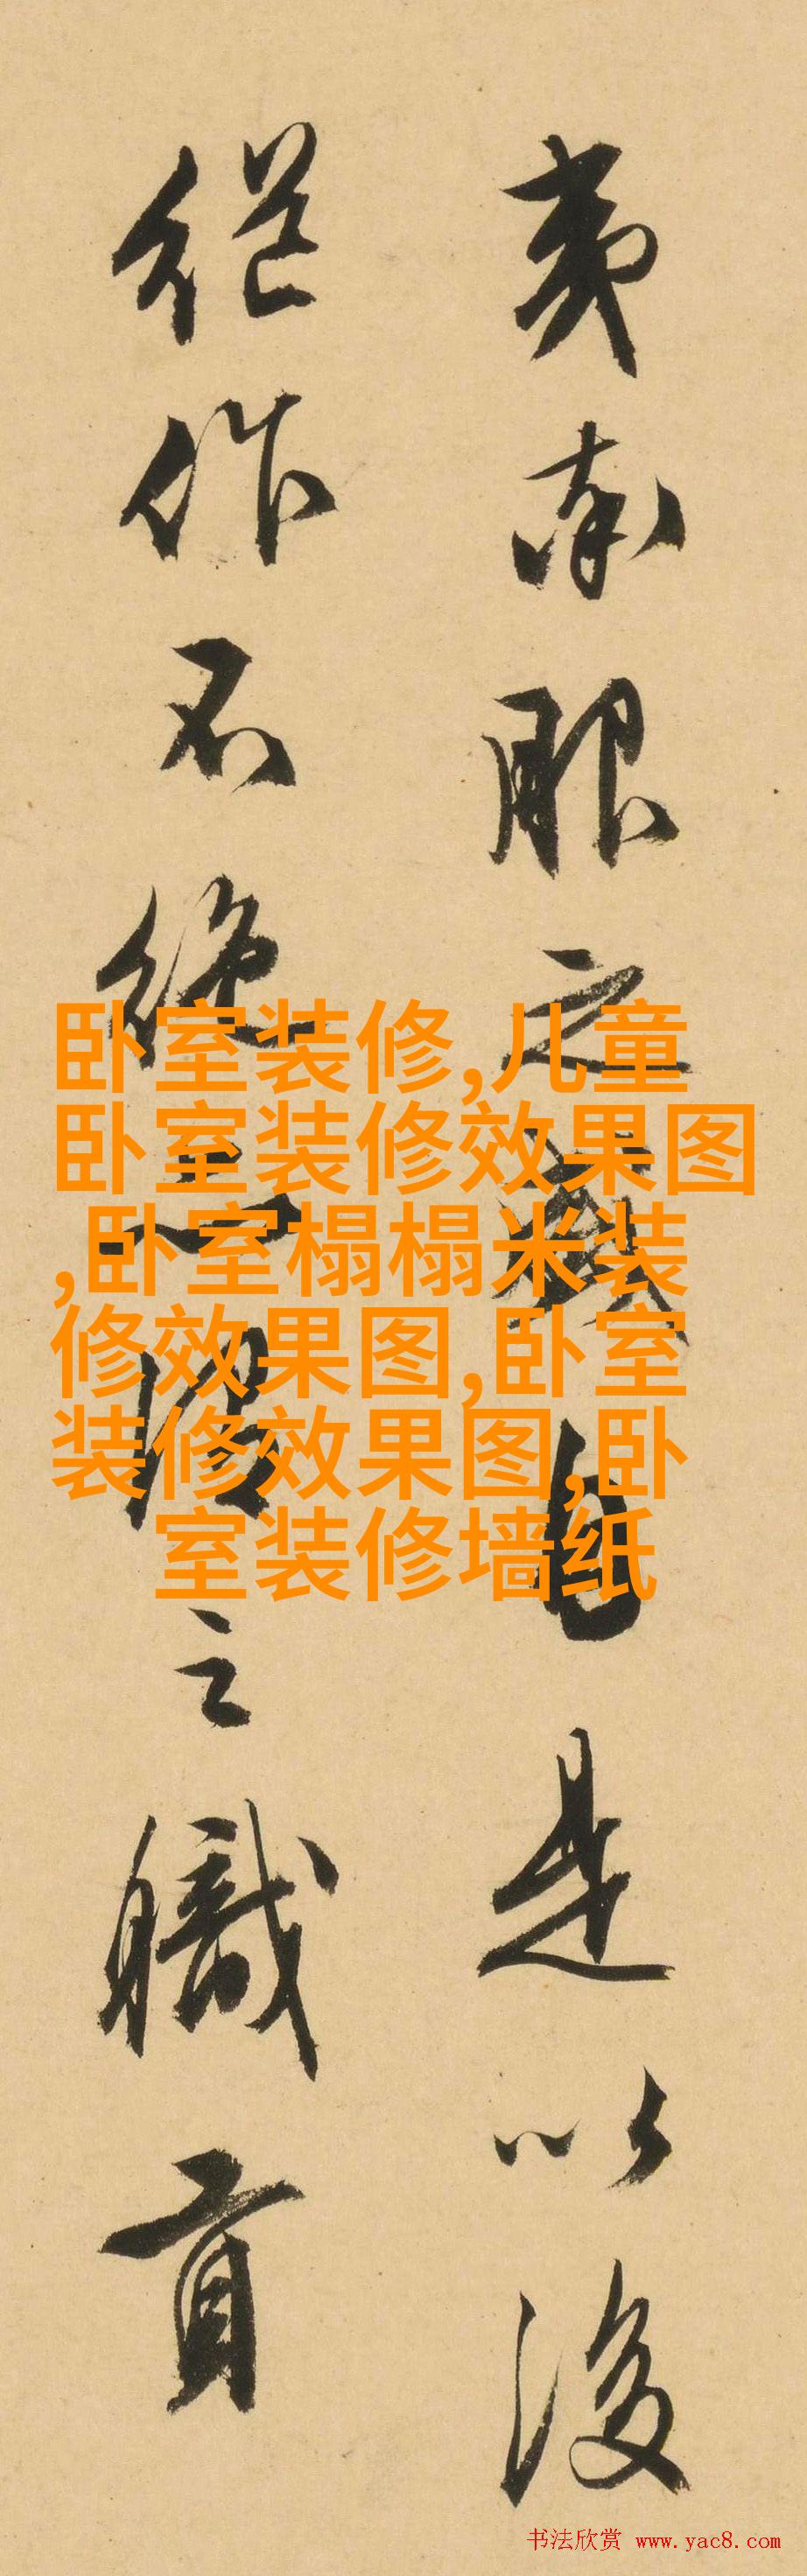 夷南服之自是以後
継作不絶之職貢
卧室装修,儿童
卧室装修效果图
,卧室榻榻米装
修效果图,卧室
装修效果图,卧
室装修墙纸
书法欣赏 www.yac8.com